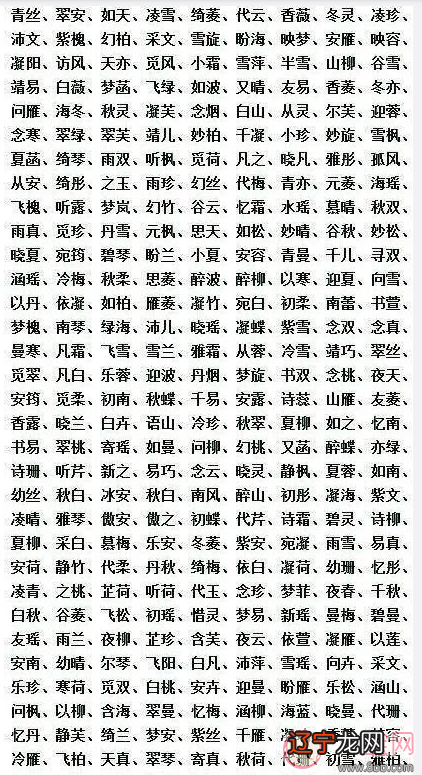 青丝、翠安、如天、凌雪、绮菱、代云、香薇、冬灵、凌珍、
沛文、紫槐、幻柏、采文、雪旋、盼海、映梦、安雁、映容、
凝阳、访风、天亦、觅风、小霜、雪萍、半雪、山柳、谷雪、
靖易、白薇、梦菡、飞绿、如波、又晴、友易、香菱、冬亦、
问雁、海冬、秋灵、凝芙、念烟、白山、从灵、尔芙、迎蓉、
念寒、翠绿、翠芙、靖儿、妙柏、千凝、小珍、妙旋、雪枫、
夏菡、绮琴、雨双、听枫、觅荷、凡之、晓凡、雅彤、孤风、
从安、绮彤、之玉、雨珍、幻丝、代梅、青亦、元菱、海瑶、
飞槐、听露、梦岚、幻竹、谷云、忆霜、水瑶、慕晴、秋双、
雨真、觅珍、丹雪、元枫、思天、如松、妙晴、谷秋、妙松、
晓夏、宛筠、碧琴、盼兰、小夏、安容、青曼、千儿、寻双、
涵瑶、冷梅、秋柔、思菱、醉波、醉柳、以寒、迎夏、向雪、
以丹、依凝、如柏、雁菱、凝竹、宛白、初柔、南蕾、书萱、
梦槐、南琴、绿海、沛儿、晓瑶、凝蝶、紫雪、念双、念真、
曼寒、凡霜、飞雪、雪兰、雅霜、从蓉、冷雪、靖巧、翠丝、
觅翠、凡白、乐蓉、迎波、丹烟、梦旋、书双、念桃、夜天、
安筠、觅柔、初南、秋蝶、千易、安露、诗蕊、山雁、友菱、
香露、晓兰、白卉、语山、冷珍、秋翠、夏柳、如之、忆南、
书易、翠桃、寄瑶、如曼、问柳、幻桃、又菡、醉蝶、亦绿、
诗珊、听芹、新之、易巧、念云、晓灵、静枫、夏蓉、如南、
幼丝、秋白、冰安、秋白、南风、醉山、初彤、凝海、紫文、
凌晴、雅琴、傲安、傲之、初蝶、代芹、诗霜、碧灵、诗柳、
夏柳、采白、慕梅、乐安、冬菱、紫安、宛凝、雨雪、易真、
安荷、静竹、代柔、丹秋、绮梅、依白、凝荷、幼珊、忆彤、
凌青、之桃、芷荷、听荷、代玉、念珍、梦菲、夜春、千秋、
白秋、谷菱、飞松、初瑶、惜灵、梦易、新瑶、曼梅、碧曼、
友瑶、雨兰、夜柳、芷珍、含芙、夜云、依萱、凝雁、以莲、
安南、幼晴、尔琴、飞阳、白凡、沛萍、雪瑶、向卉、采文、
乐珍、寒荷、觅双、白桃、安卉、迎曼、盼雁、乐松、涵山、
问枫、以柳、含海、翠曼、忆梅、涵柳、海蓝、晓曼、代珊、
忆丹、静芙、绮兰、梦安、紫丝、千雁、
冷雁、飞柏、天真、翠琴、寄真、秋荷、代珊、初雪、雅柏、
辽宁龙网